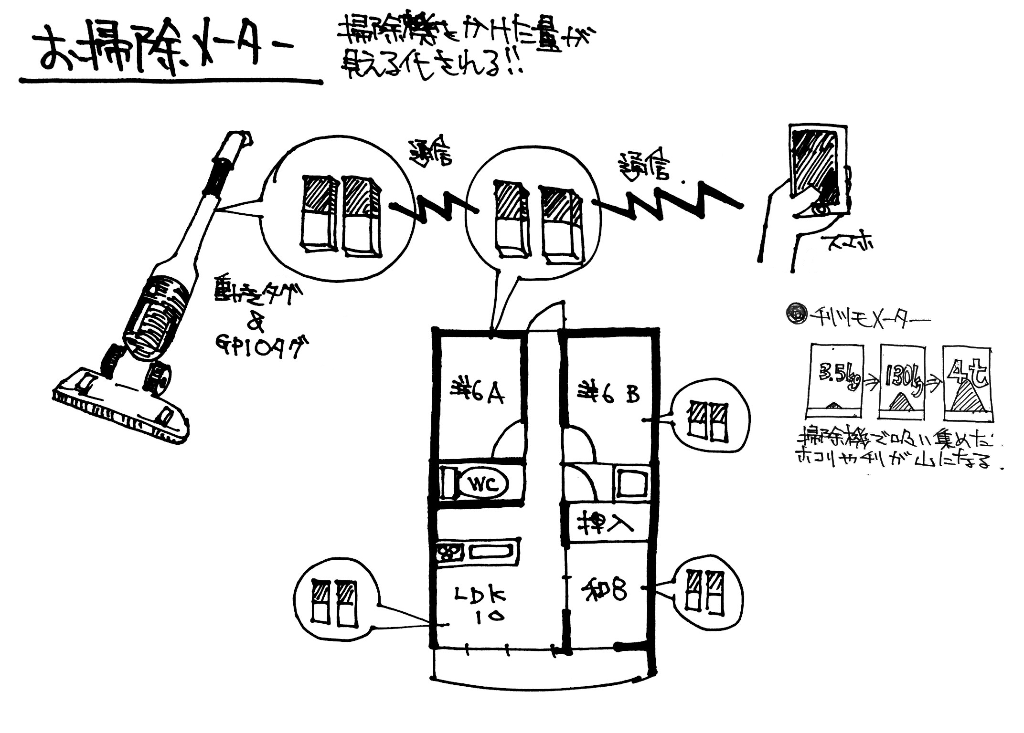 お掃除メーター
掃除機をかけた量が
見える化される!!
通信
通信
スマホ
動きタグ
&
GPIOタグ
チリツモメーター
3.5kg
130kg
4t
掃除機で吸い集めた
ホコリやチリが山になる.
洋6A
洋6 B
WC
押入
LDK
10
和8